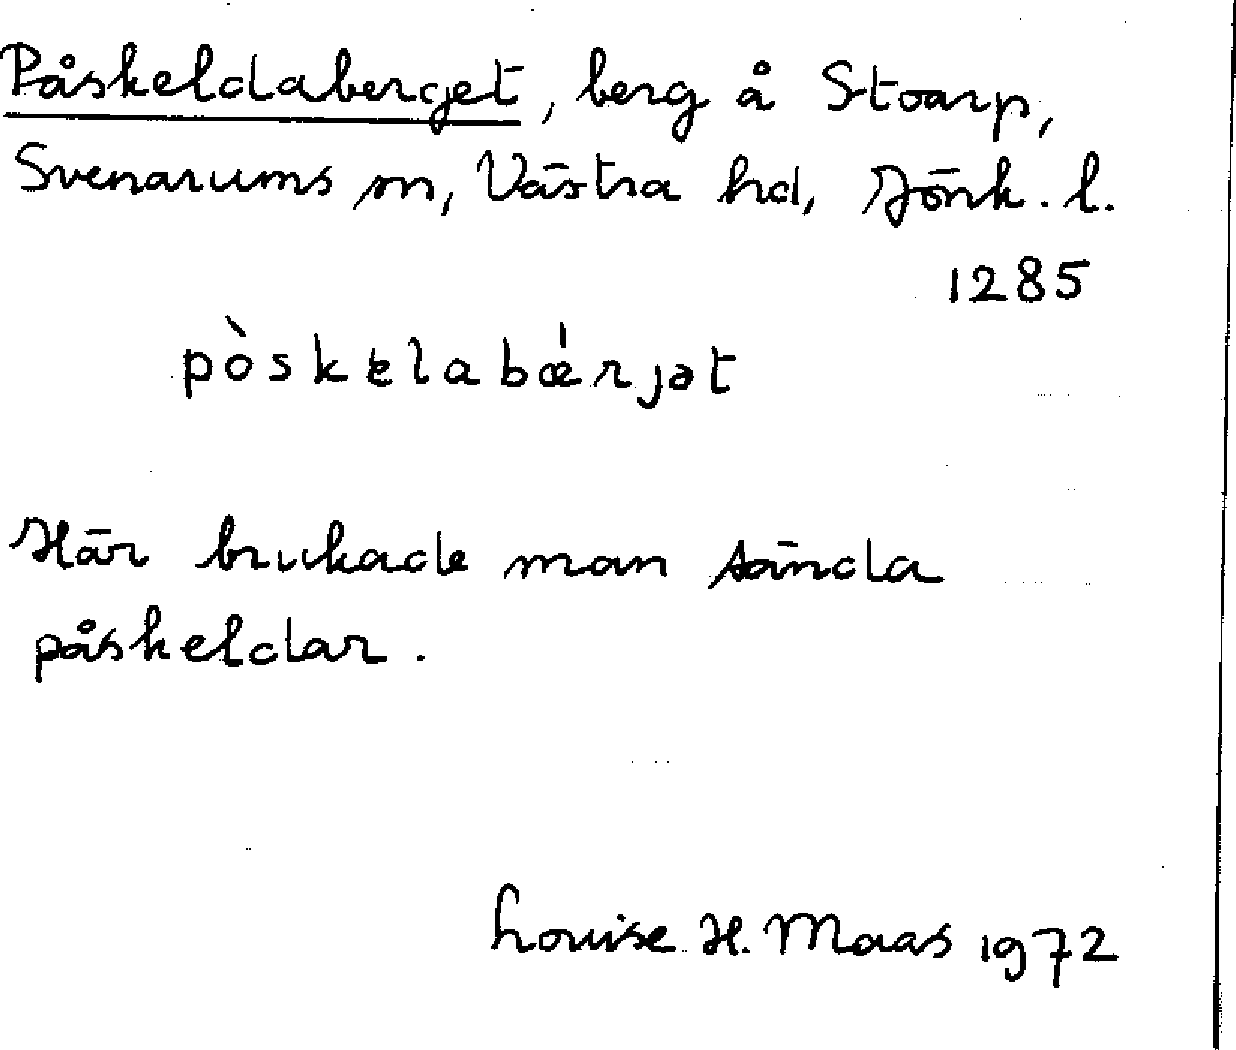 Påskeldaberget, berg å Stoarp,
Svenarums sn, Västra hd, Jönk. l.
1285
pòskelabǽrjət
Här brukade man tända
påskeldar.
Louise H. Maas 1972